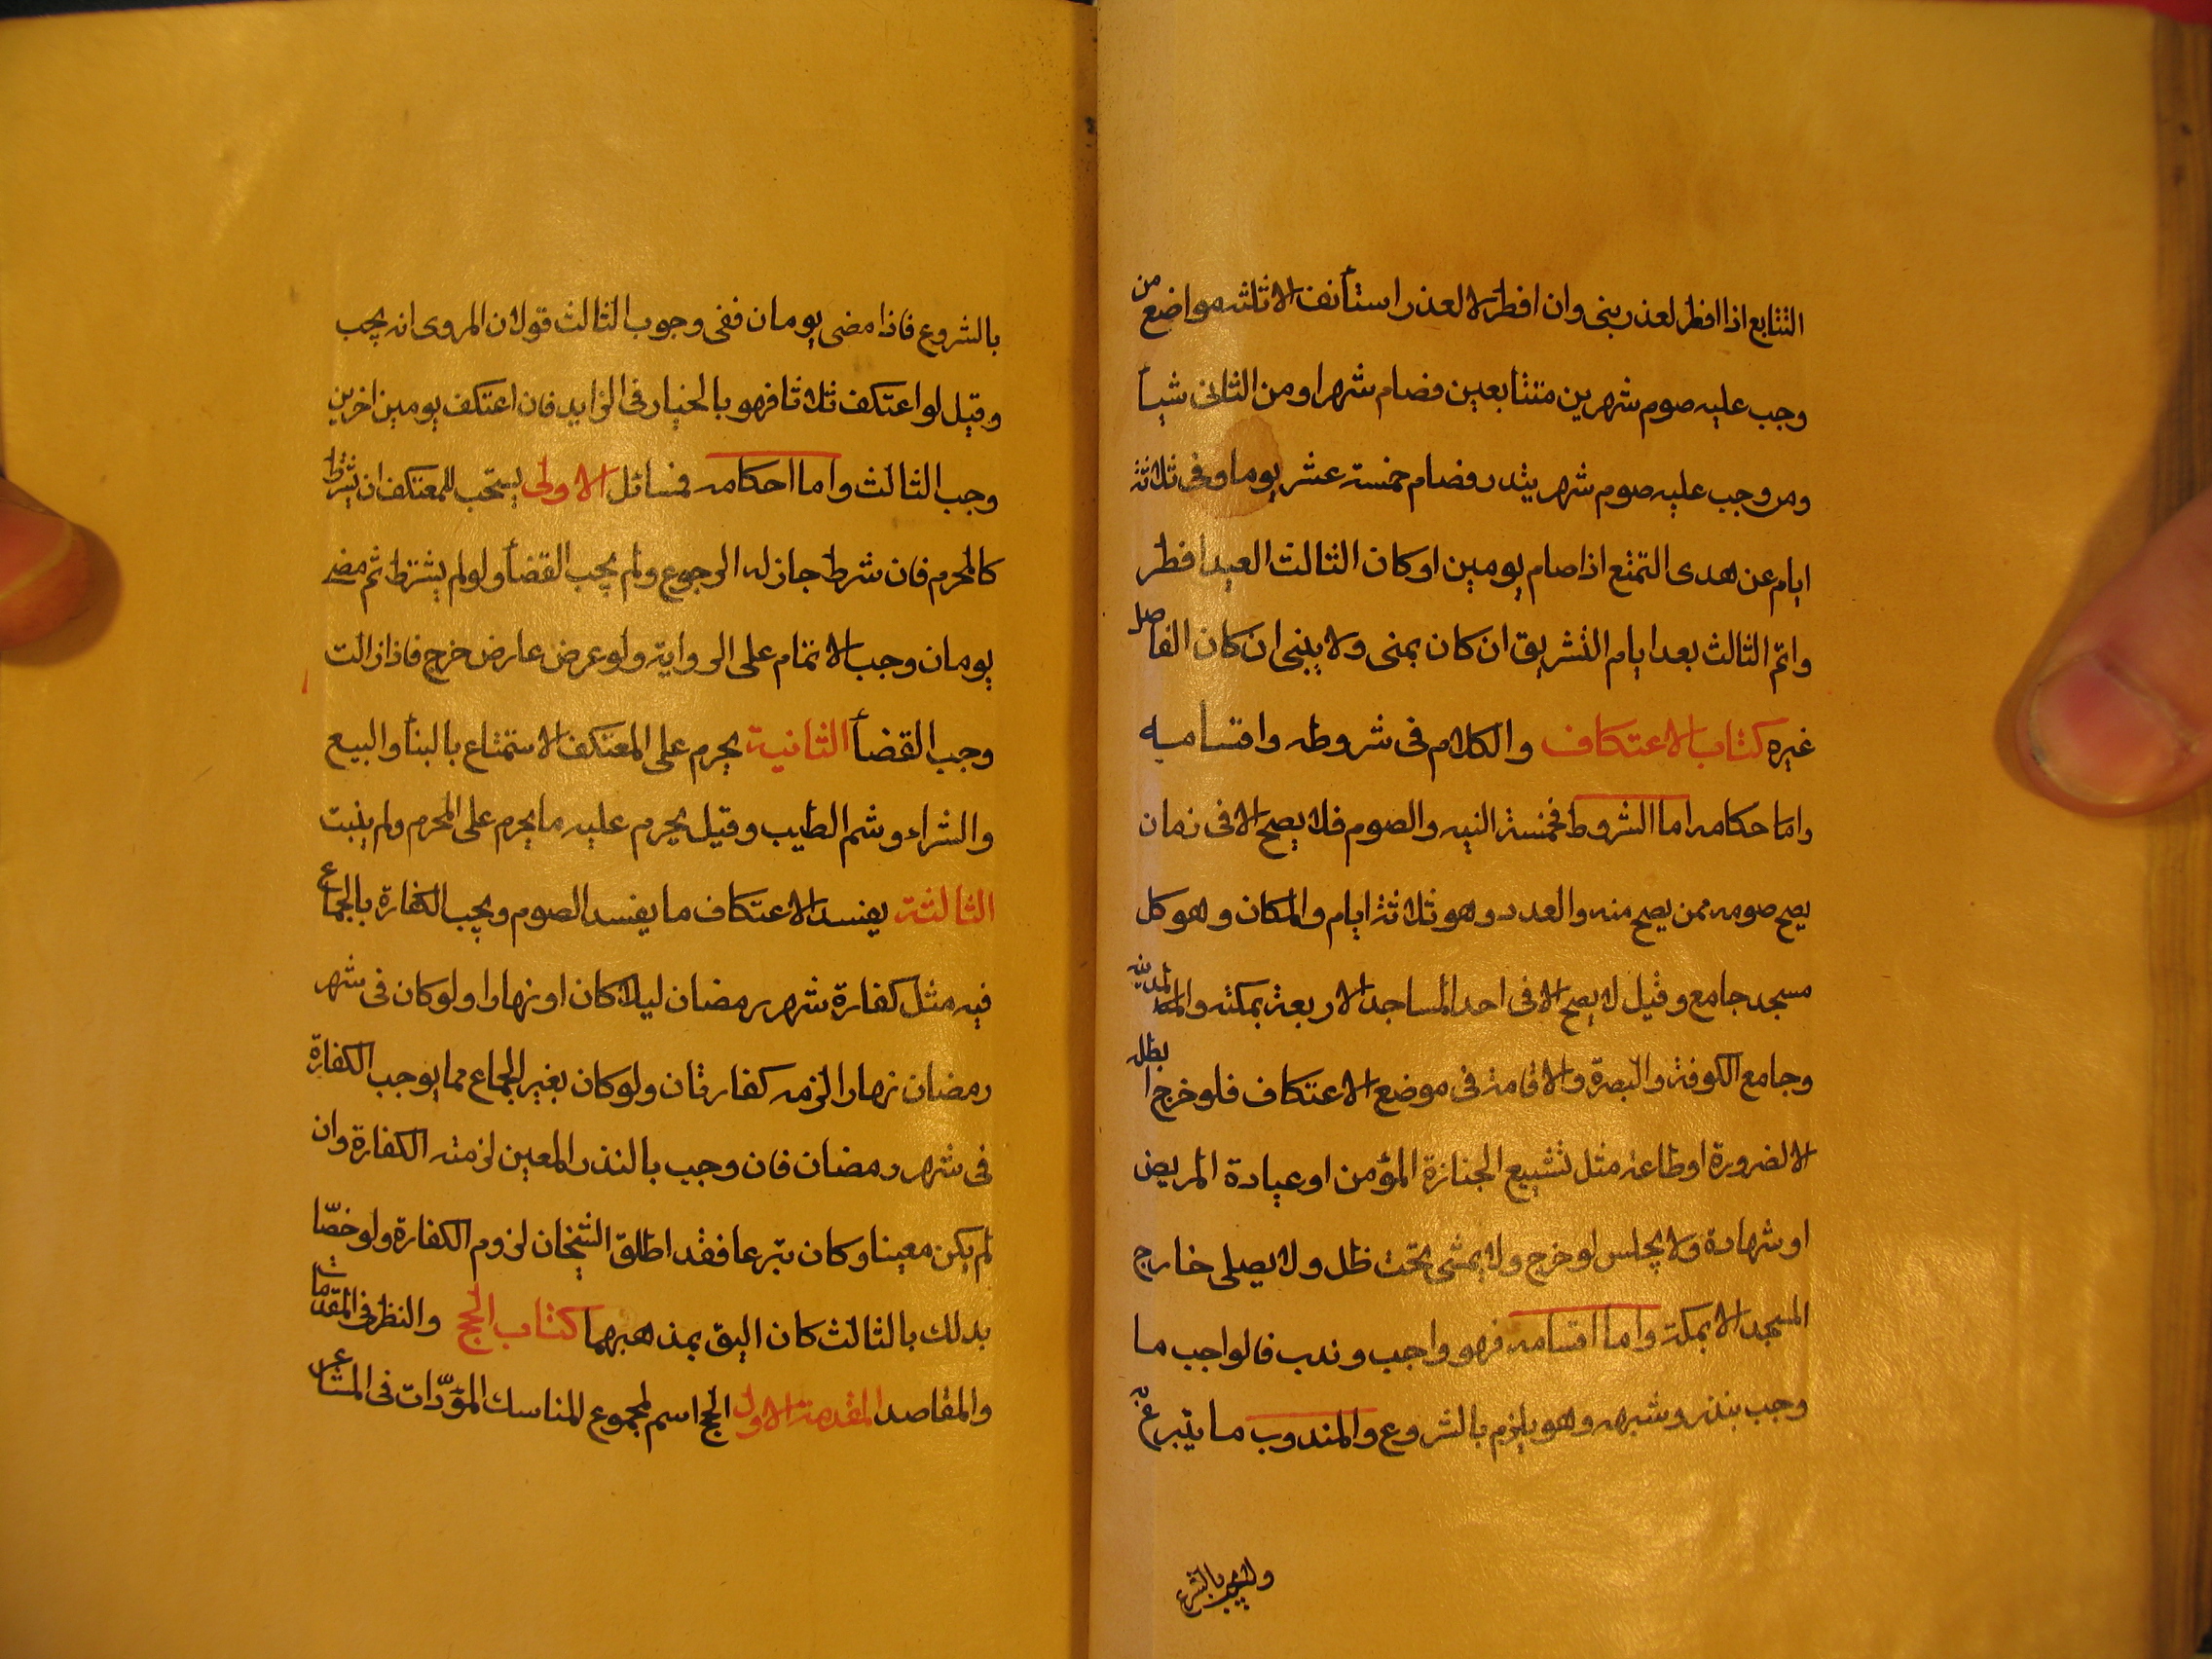 التتابع اذا افطر لعذر بنى وان افطر لا لعذر استأنف الا ثلثه مواضع من
وجب عليه صوم شهرين متتابعين فصام شهرا ومن الثانى شيأ
ومن وجب عليه صوم شهر بنذر فصام خمسة عشر يوما وفى ثلاثة
ايام عن هدى التمتع اذا صام يومين وكان الثالث العيد افطر
واتم الثالث بعد ايام التشريق ان كان بمنى ولا يبنى ان كان الفاصل
غيره كتاب الاعتكاف والكلام فى شروطه واقسامه
واحكامه اما الشروط فخمسة النيه والصوم فلا يصح الا فى زمان
يصح صومه ممن يصح منه والعدد وهو ثلاثة ايام والمكان وهو كل
مسجد جامع وقيل لا يصح الا فى احد المساجد الاربعة بمكة والمدينه
وجامع الكوفة والبصرة والاقامة فى موضع الاعتكاف فلو خرج ابطله
الا لضرورة او طاعة مثل تشييع الجنازة المؤمن او عيادة المريض
او شهادة ولا يجلس لو خرج ولا يمشى تحت ظل ولا يصلى خارج
المسجد الا بمكة واما اقسامه فهو واجب وندب فالواجب ما
وجب بنذر وشبهه وهو يلزم بالشروع والمندوب ما يتبرع به
بالشروع فاذا مضى يومان ففى وجوب الثالث قولان المروى انه يجب
وقيل لو اعتكف ثلاثا فهو بالخيار فى الزايد فان اعتكف يومين اخرين
وجب الثالث واما احكامه فمسائل الاولى يستحب للمعتكف ان يشترط
كالمحرم فان شرط جاز له الرجوع ولم يجب القضأ ولو لم يشترط ثم مضى
يومان وجب الاتمام على الرواية ولو عرض عارض خرج فاذا زالت
وجب القضأ الثانية يحرم على المعتكف الاستمتاع بالنسأ والبيع
والشراء وشم الطيب وقيل يحرم عليه ما يحرم على المحرم ولم يثبت
الثالثة يفسد الاعتكاف ما يفسد الصوم ويجب الكفارة بالجماع
فيه مثل كفارة شهر رمضان ليلا كان او نهارا ولو كان فى شهر
رمضان نهارا لزمه كفارتان ولو كان بغير الجماع مما يوجب الكفارة
فى شهر رمضان فان وجب بالنذر المعين لزمته الكفارة وان
لم يكن معينا او كان تبرعا فقد اطلق الشيخان لزوم الكفارة ولو خصّا
بدلك بالثالث كان اليق بمذهبهما كتاب الحج والنظر فى المقدمات
والمقاصد المقدمة الاولى الحج اسم لمجموع المناسك المؤدّات فى المشاعر